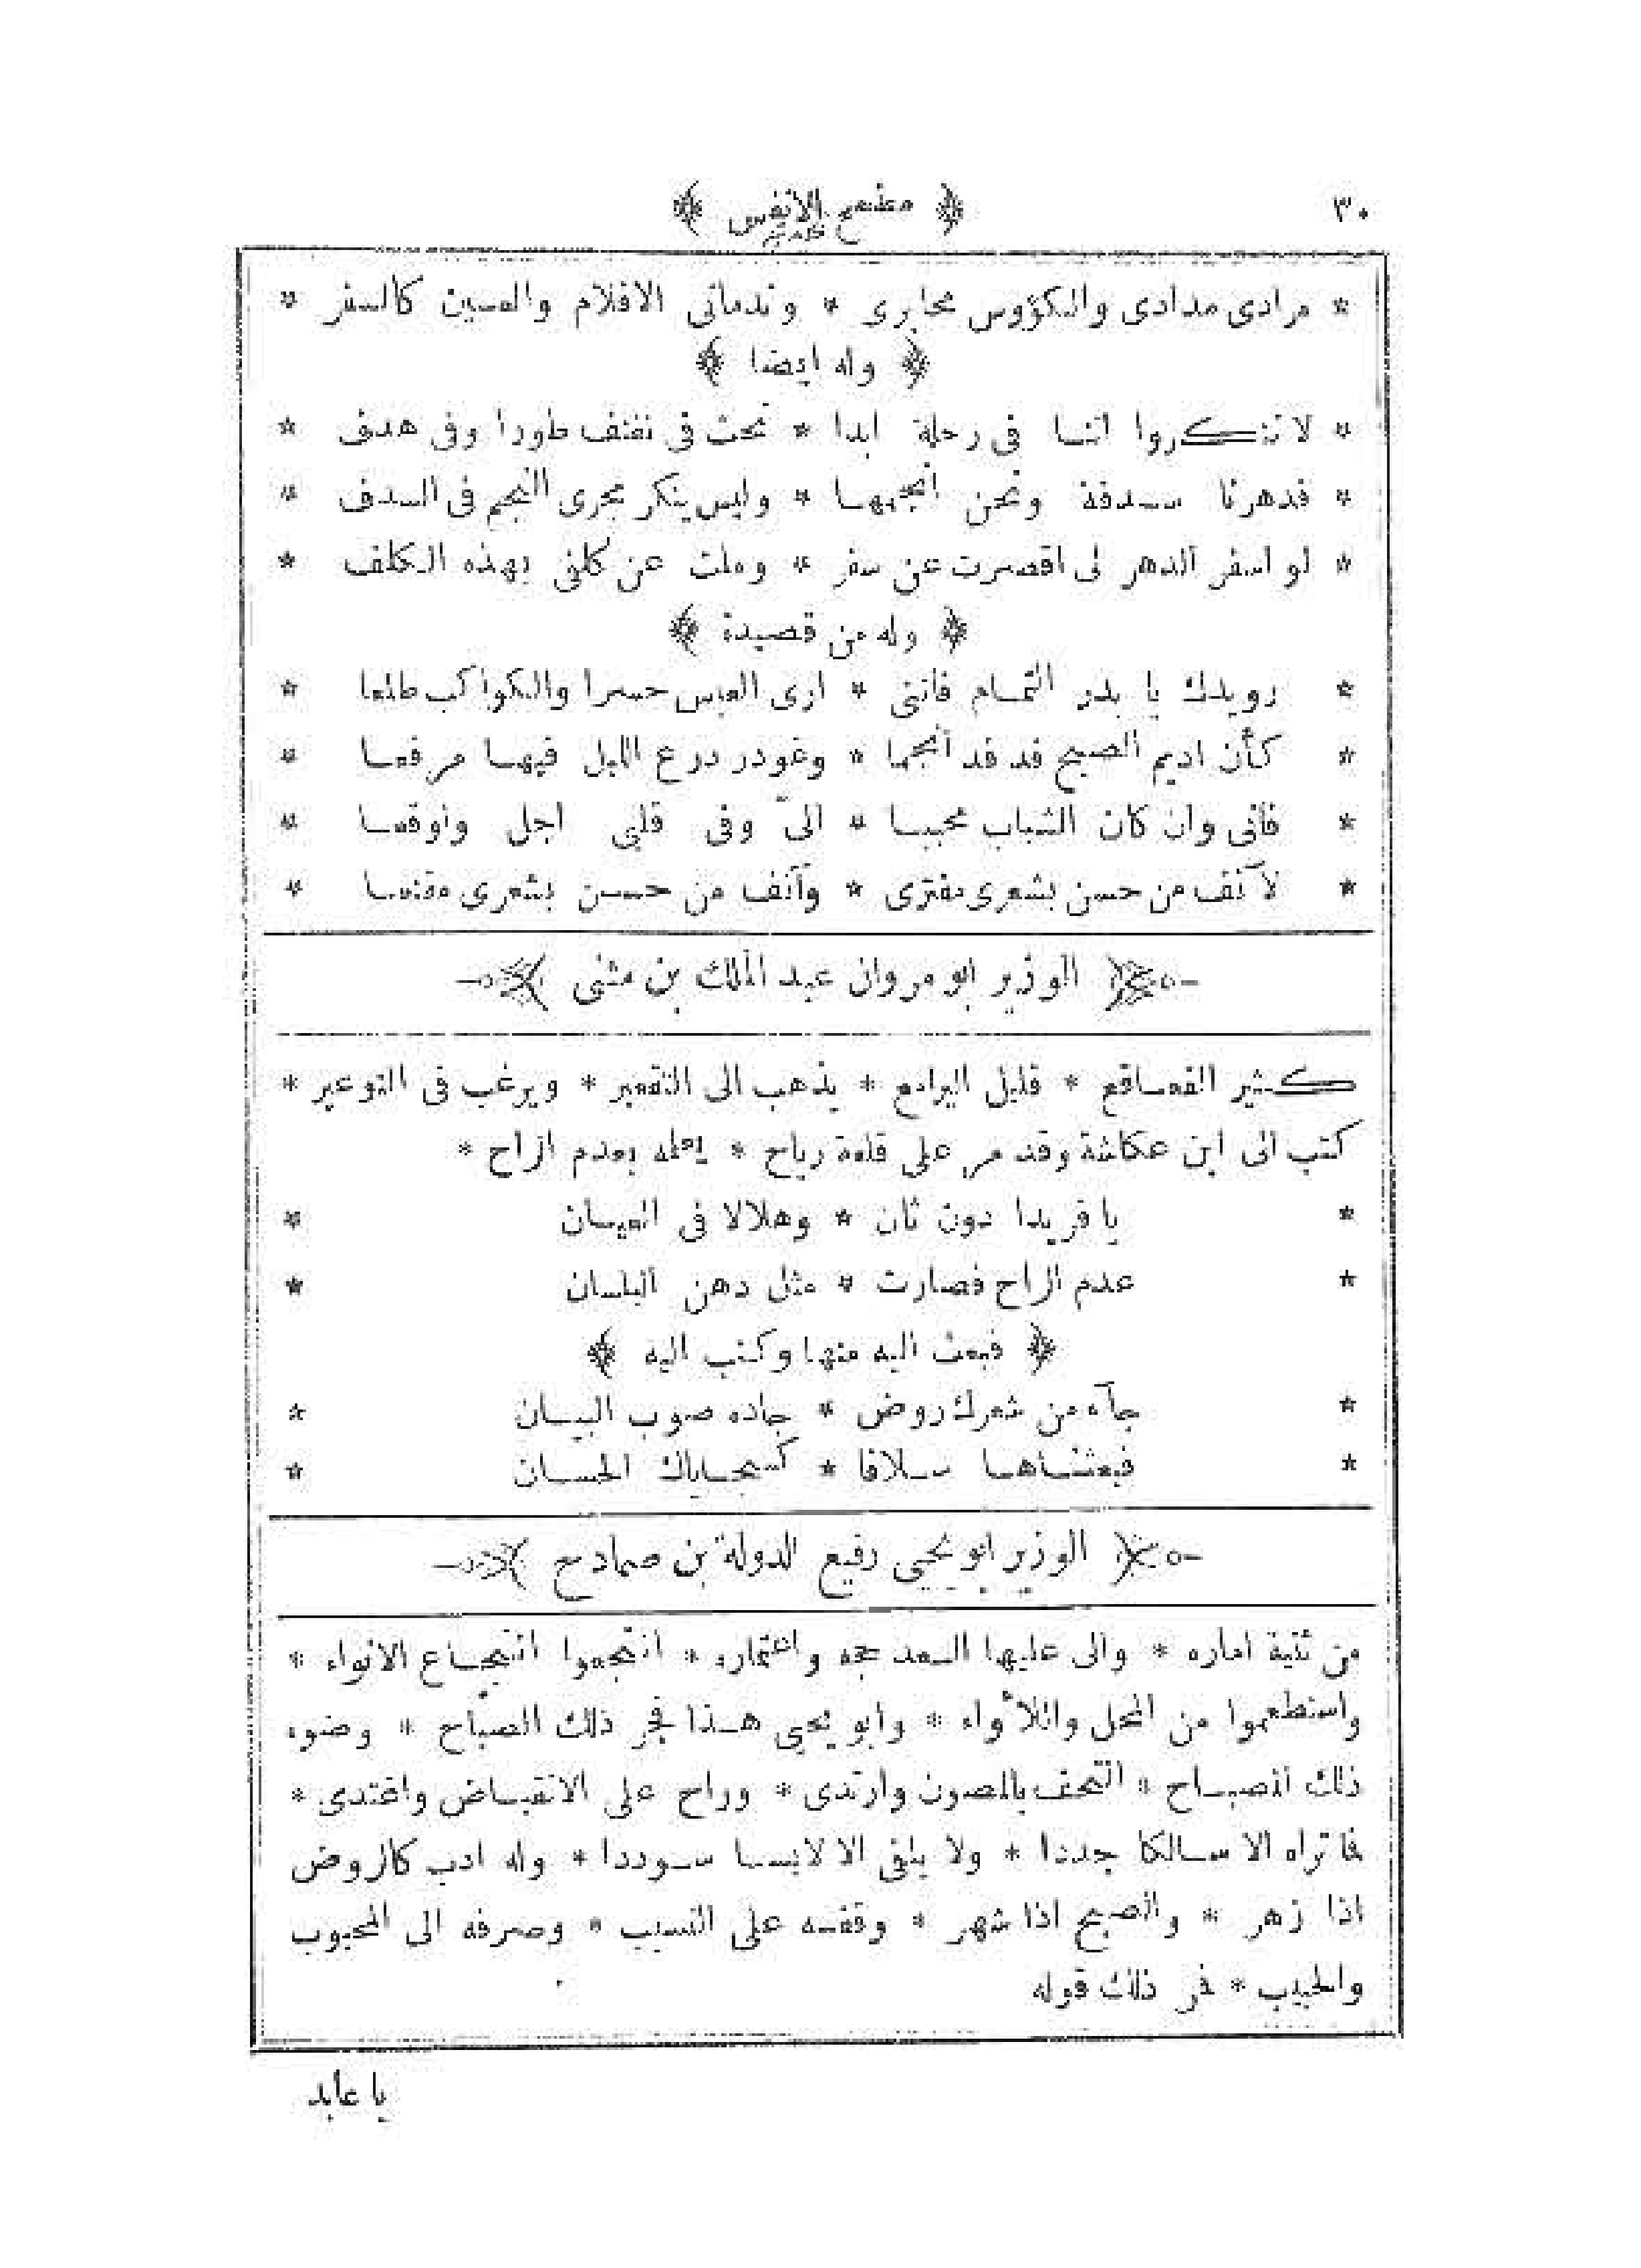 ٣٠ ﴿ مطمح الانفس ﴾
* مرادى مدادى والكؤوس محابرى * وندمانى الاقلام والعين كالسفر *
﴿ وله ايضا ﴾
* لا تنكروا اننا فى رحلة ابدا * نحث فى نفنف طورا وفى هدف *
* فدهرنا سدفة ونحن انجمها * وليس ينكر مجرى النجم فى السدف *
* لو اسفر الدهر لى اقصرت عن سفر * وملت عن كلفى بهذه الكلف *
﴿ وله من قصيدة ﴾
* رويدك يا بدر التمام فاننى * ارى العيس حسرا والكواكب طلعا *
* كأن اديم الصبح قد قد أنجما * وغودر درع الليل فيها مرقعا *
* فانى وان كان الشباب محببا * الىّ وفى قلبى اجل واوقعا *
* لآنف من حسن بشعرى مفترى * وآنف من حسن بشعرى مقنعا *
﴿ الوزير ابو مروان عبد الملك بن مثنى ﴾
كثير القعاقع * قليل اليرامع * يذهب الى التقعير * ويرغب فى التوعير *
كتب الى ابن عكاشة وقد مر على قلعة رباح * يعلمه بعدم الراح *
* يا فريدا دون ثان * وهلالا فى العيان *
* عدم الراح فصارت * مثل دهن البلسان *
﴿ فبعث اليه منها وكتب اليه ﴾
* جآء من شعرك روض * جاده صوب البيان *
* فبعثناها سلافا * كسجاياك الحسان *
﴿ الوزير ابو يحيى رفيع الدولة بن صمادح ﴾
من ثنية اماره * والى عليها السعد حجه واعتماره * انتجعوا انتجاع الانواء *
واستطعموا من المحل واللأواء * وابو يحيى هذا فجر ذلك الصباح * وضوء
ذلك المصباح * التحف بالمصون وارتدى * وراح على الانقباض واغتدى *
فا تراه الا سالكا جددا * ولا يلقى الا لابسا سوددا * وله ادب كالروض
اذا زهر * والصبح اذا شهر * وقفه على النسيب * وصرفه الى المحبوب
والحبيب * فمن ذلك قوله
يا عابد